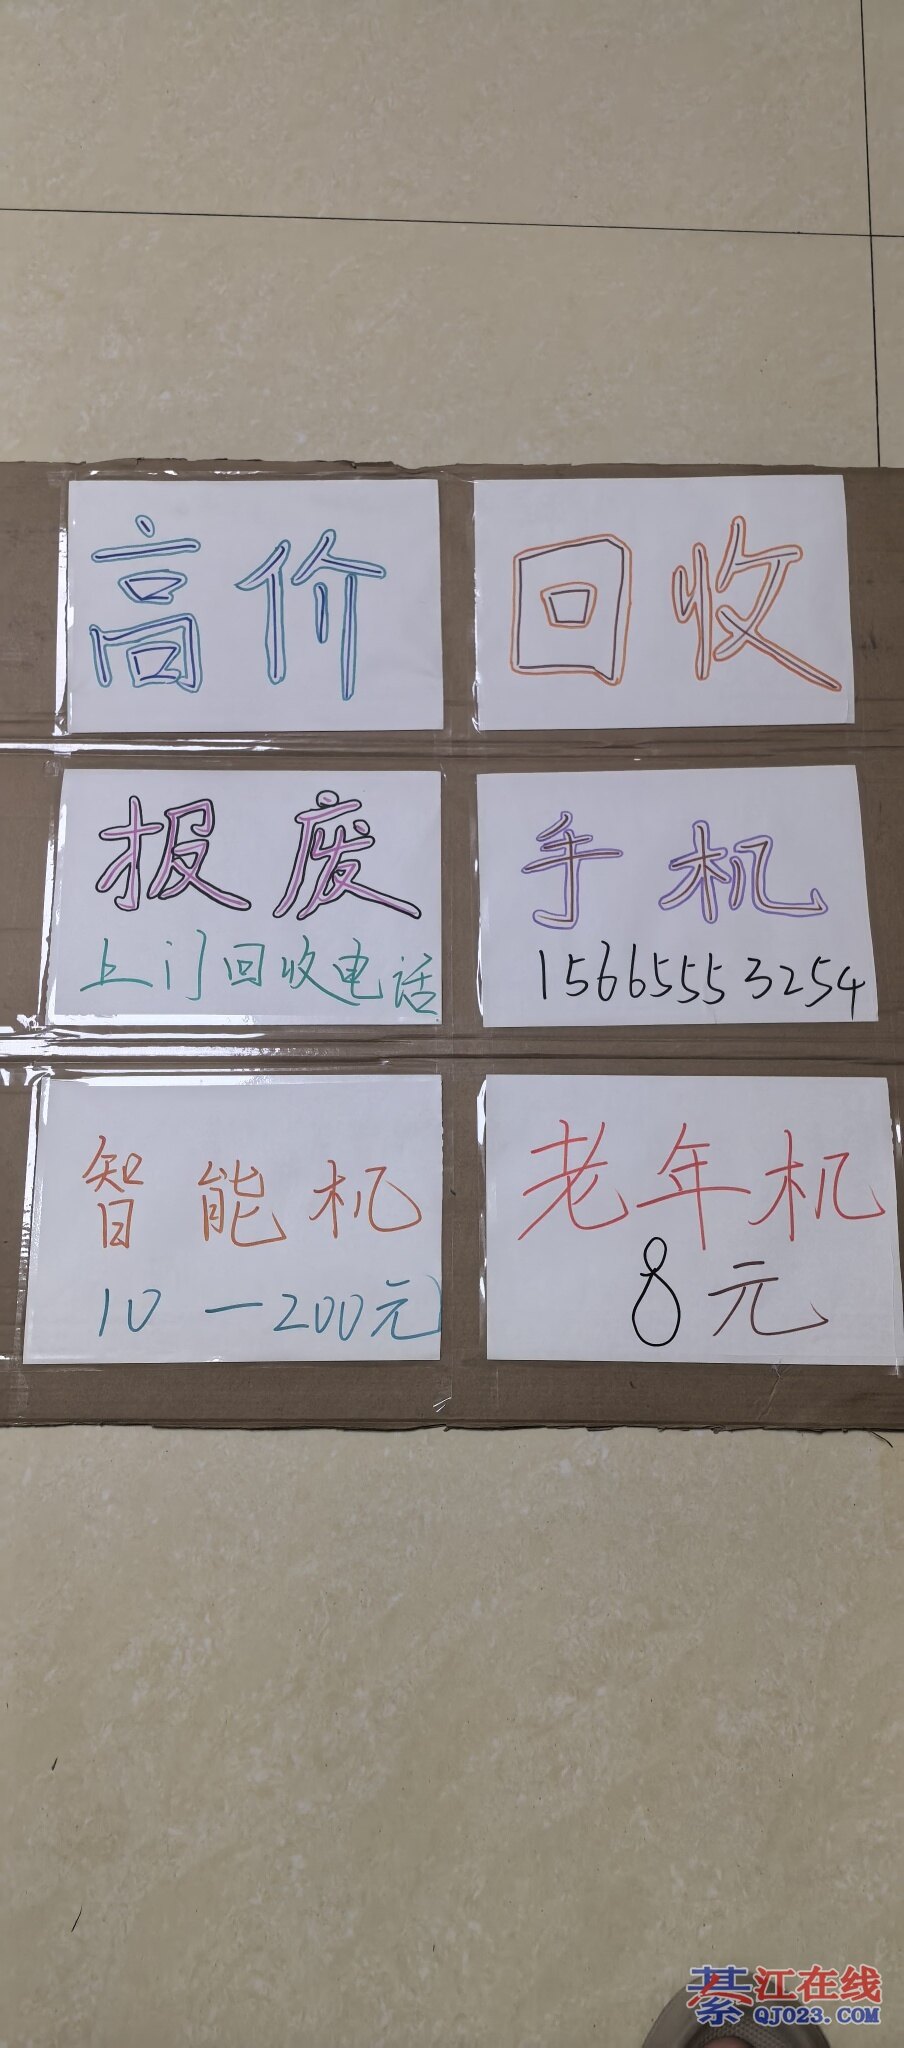 高价 回收
报废 手机
上门回收电话 15665553254
智能机 老年机
10一200元 8元
綦江在线
QJ023.COM